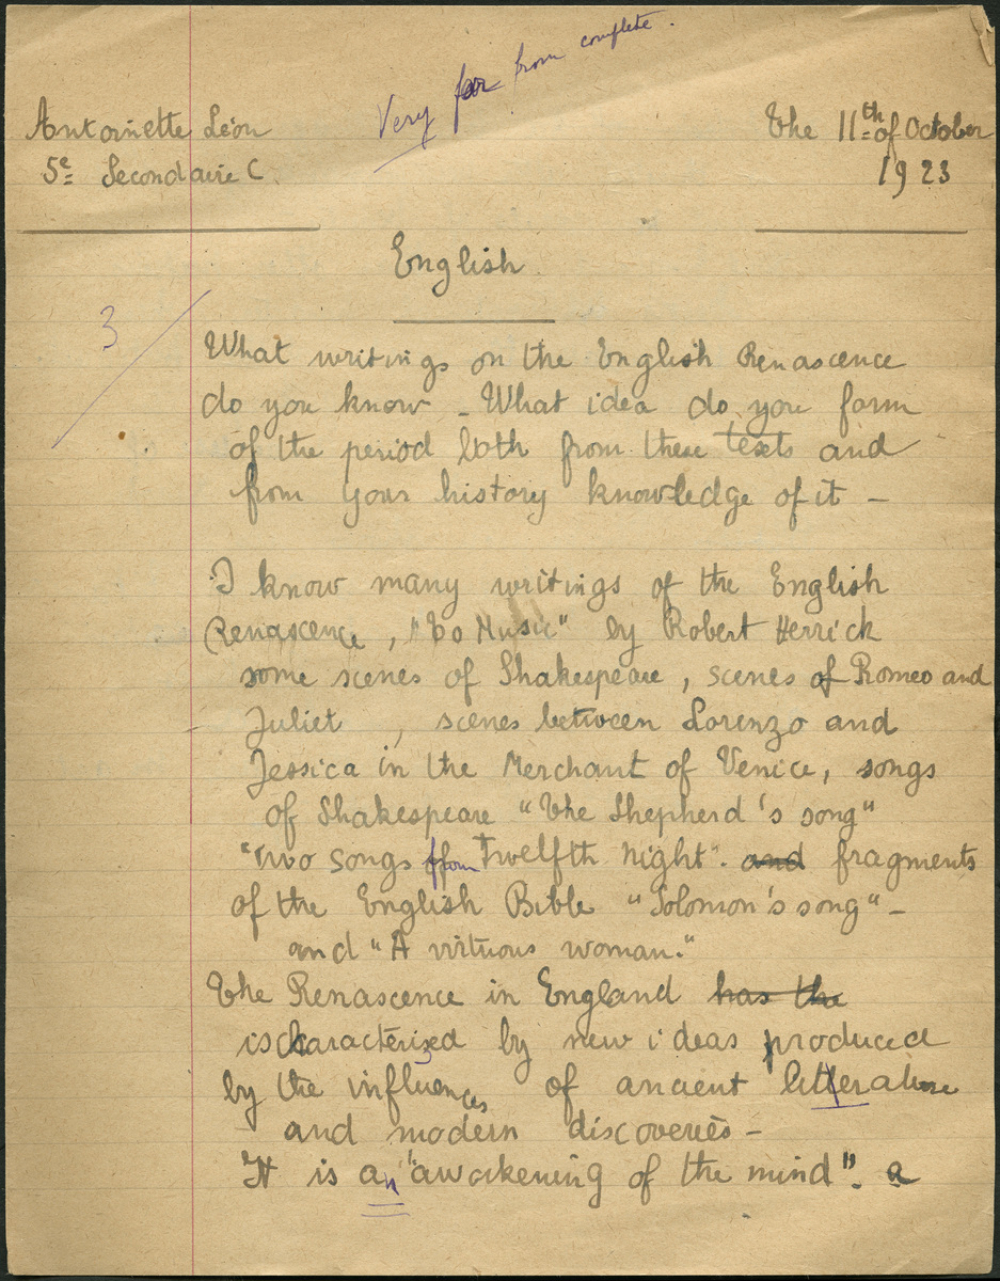 Very far from complete.
Antoinette Léon
The 11th of October
5e Secondaire C.
1923
English
3
What writings on the English Renascence
do you know - What idea do you form
of the period both from these texts and
from your history knowledge of it -
I know many writings of the English
Renascence, "To Music" by Robert Herrick
some scenes of Shakespeare, scenes of Romeo and
Juliet , scenes between Lorenzo and
Jessica in the Merchant of Venice, songs
of Shakespeare "The Shepherd's song"
"Two songs from Twelfth Night". and fragments
of the English Bible "Solomon's song" -
and "A virtuous woman."
The Renascence in England has the
is characterized by new ideas produced
by the influences of ancient litterature
and modern discoveries -
It is an "awakening of the mind". a